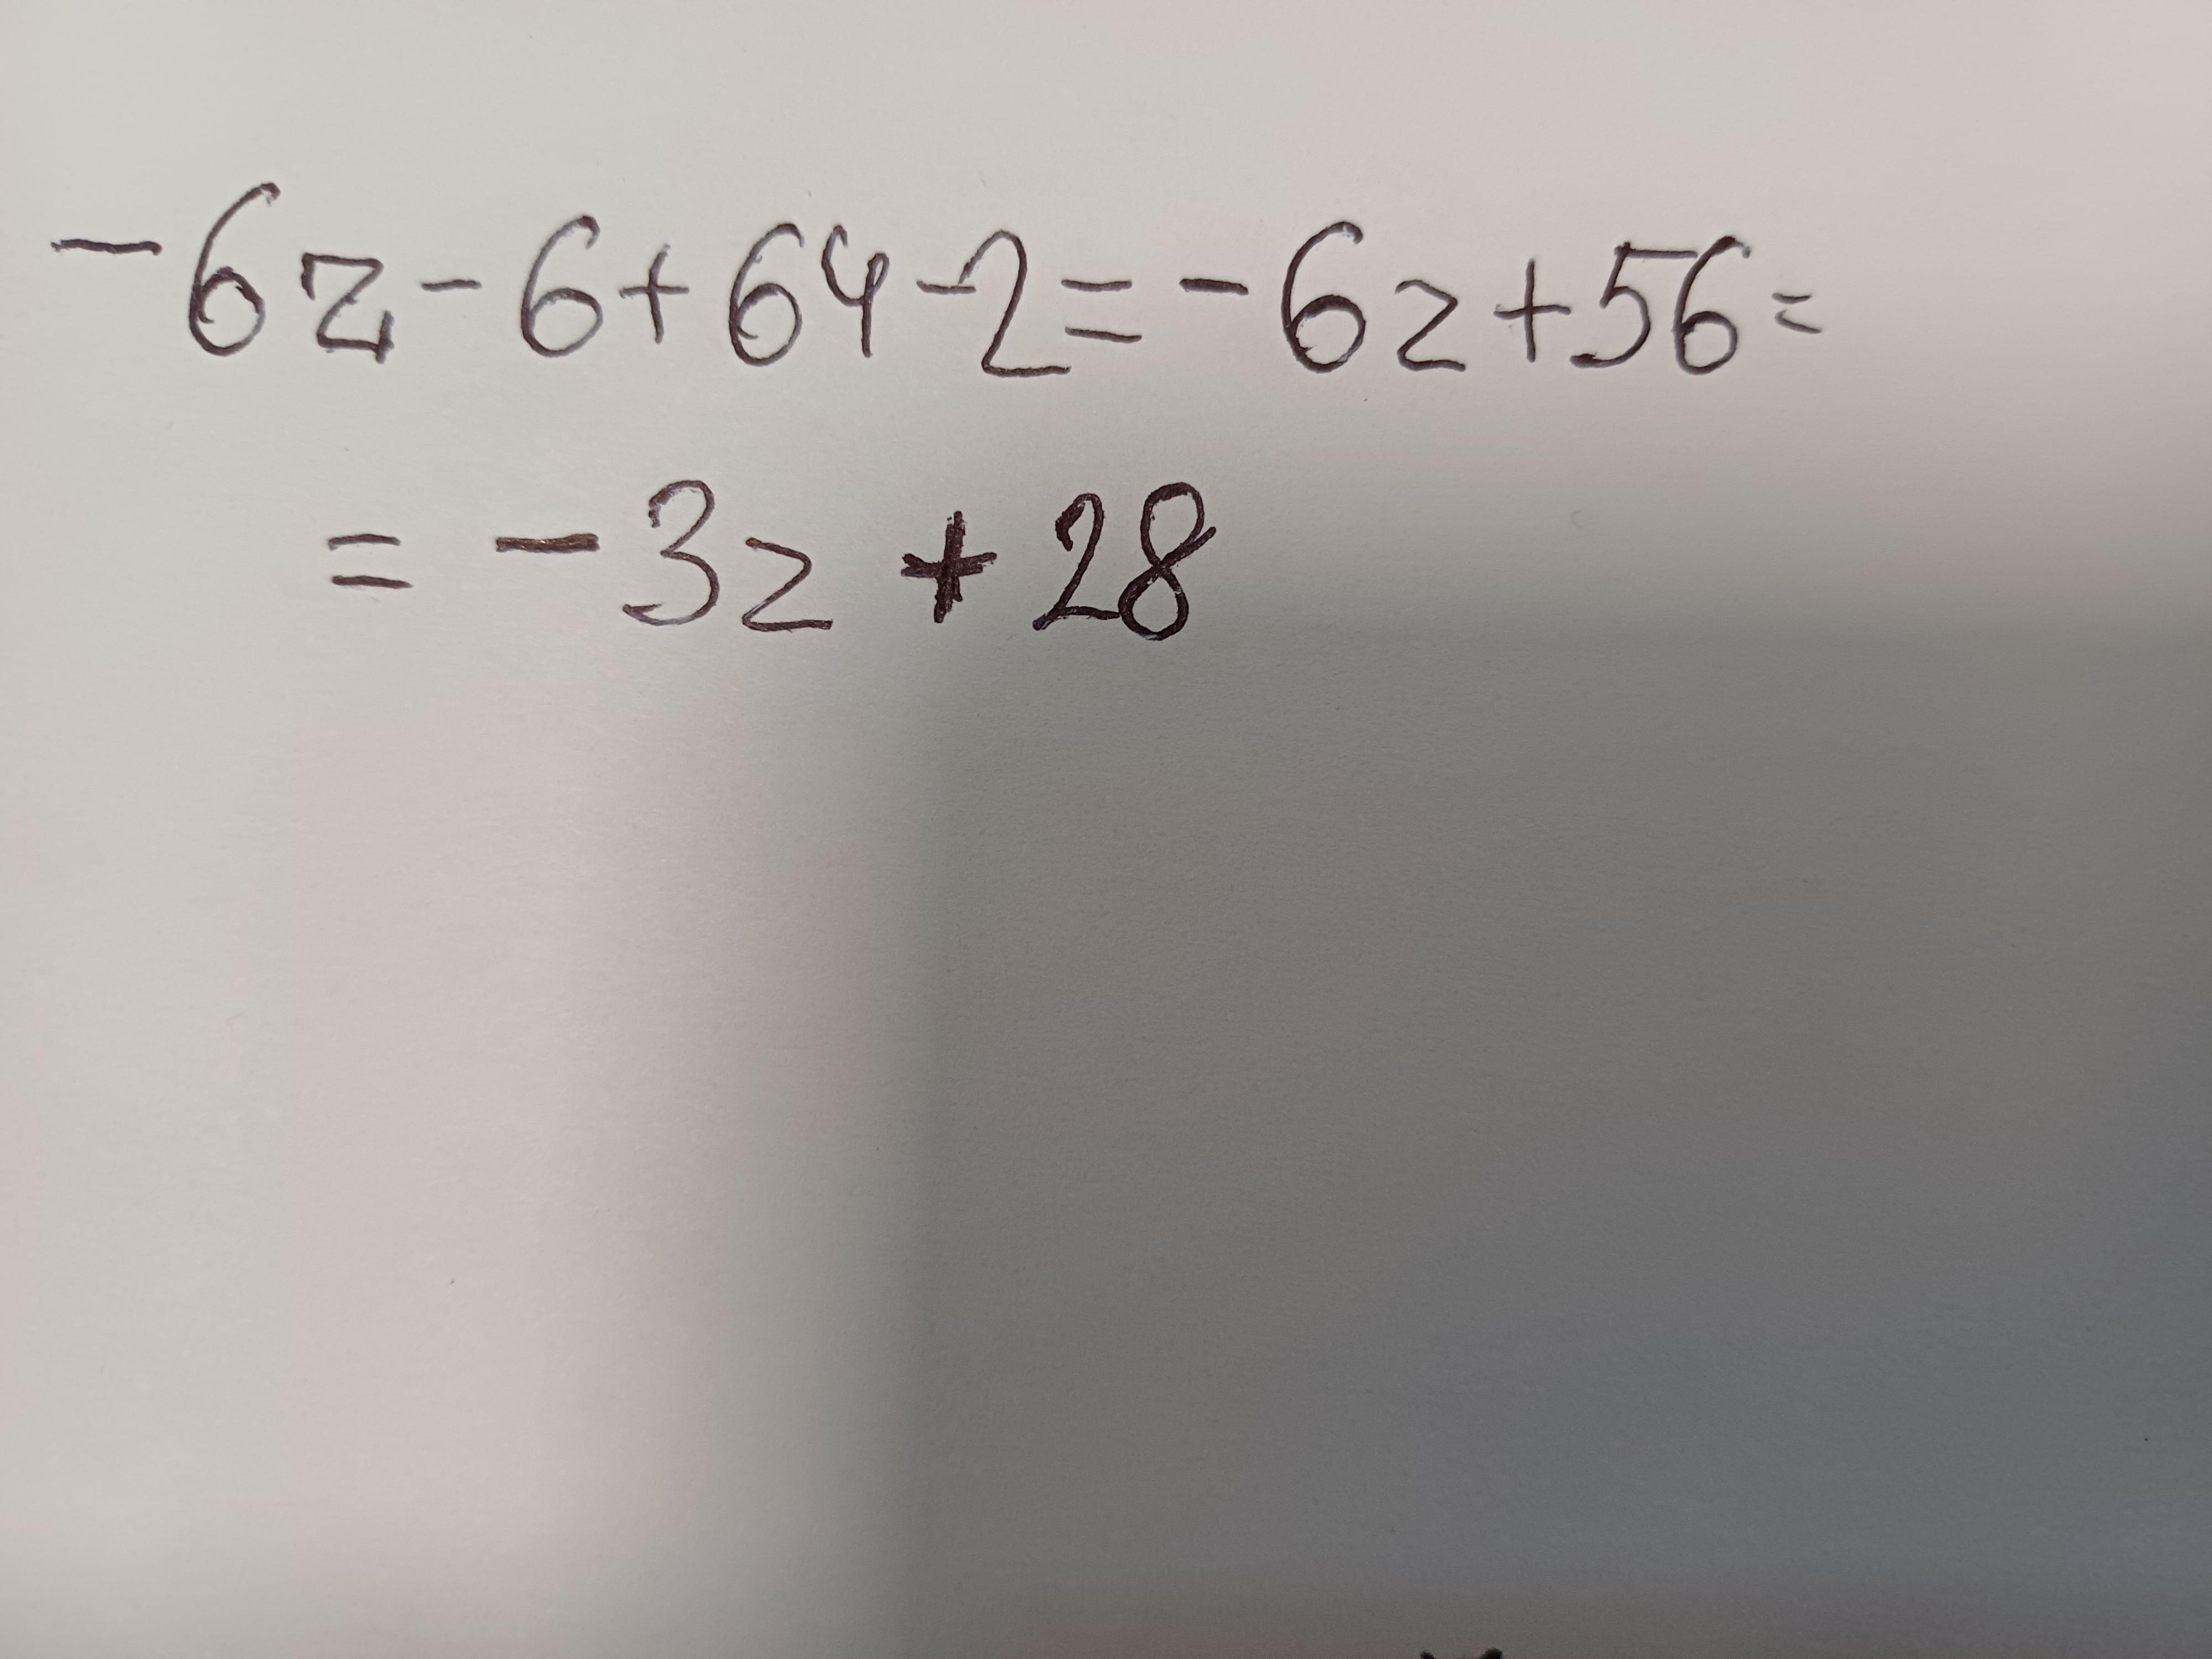 -6z-6+64-2=-6z+56=
= -3z + 28